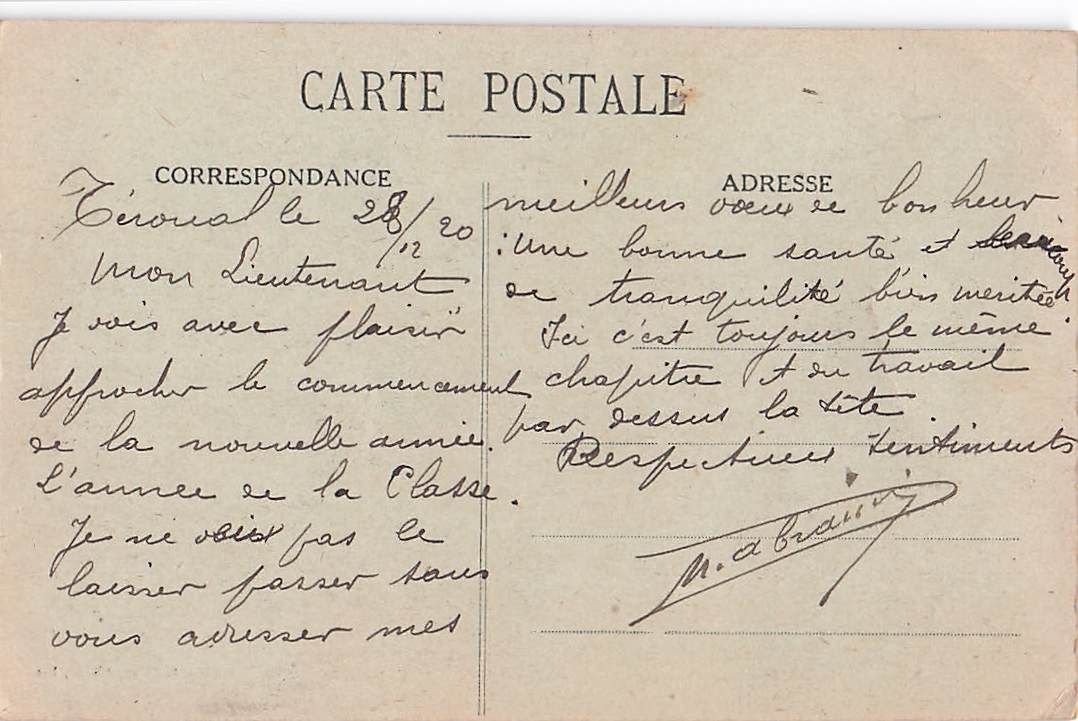 CARTE POSTALE
CORRESPONDANCE
Téroual le 28/12 20
Mon Lieutenant
Je vois avec plaisir
approcher le commencement
de la nouvelle année.
L'année de la Classe.
Je ne veux pas le
laisser passer sans
vous adresser mes
ADRESSE
meilleurs vœux de bonheur
: une bonne santé et beaucoup
de tranquilité bien meritée.
Ici c'est toujours le même
chapitre et du travail
par dessus la tête.
Respectueux sentiments